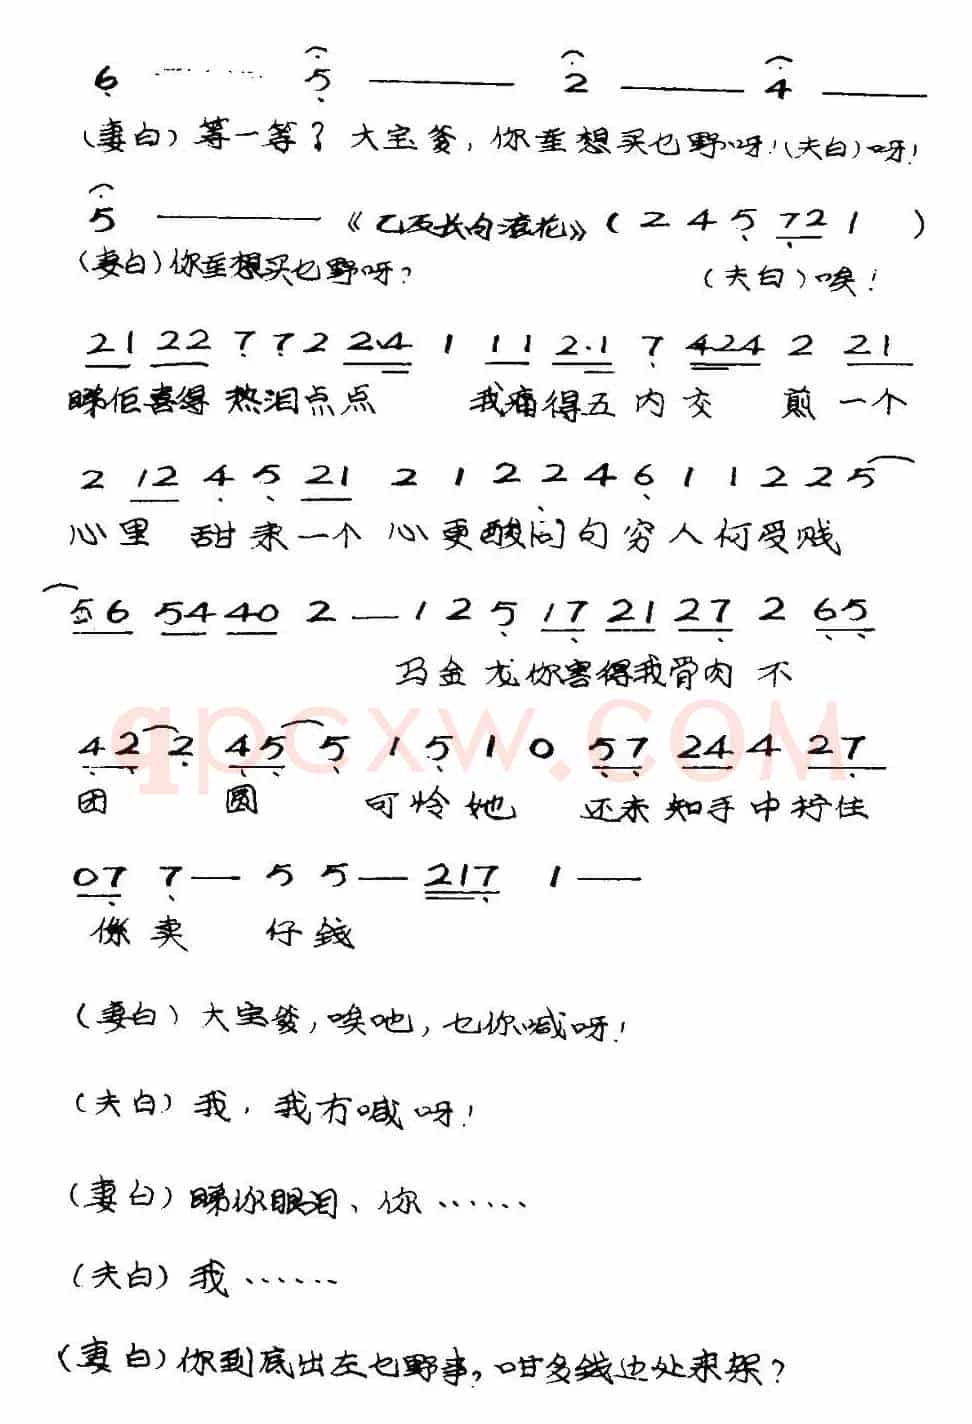 6 ········ 5 —— 2 —— 4 ——
(妻白)等一等了 大宝爹,你重想买乜野呀!(夫白)呀!
5 —— 《乙反长句滚花》( 2 4 5 72 1 )
(妻白)你重想买乜野呀? (夫白)唉!
21 22 7 7 2 2·4 1 11 2·1 7 424 2 21
睇佢喜得 热泪点点 我痛得五内交 煎 一个
2 12 4 5 21 2 1 2 2 4 6 1 1 2 2 5
心里 甜来一个 心更酸问句穷人何受贱
56 54 40 2 — 1 2 5 17 21 27 2 65
马金龙你害得我骨肉 不
42 2 45 5 1 5 1 0 57 24 4 27
团 圆 可怜她 还未知手中拧住
07 7 — 5 5 — 217 1 —
係卖 仔钱
qpcxw.com
(妻白)大宝爹,唉吔,乜你喊呀!
(夫白)我,我冇喊呀!
(妻白)睇你眼泪、你……
(夫白)我……
(妻白)你到底出左乜野事,咁多钱边处来架?